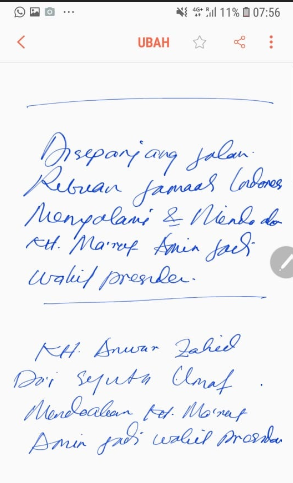 11% 07:56
UBAH
Disepanjang jalan.
Ribuan Jamaah Indones
Menyalami &
KH. Ma'ruf Amin jadi
wakil presiden.
KH. Anwar Zahid
Da'i sejuta Umat
Mendoakan KH. Ma'ruf
Amin jadi wakil presiden